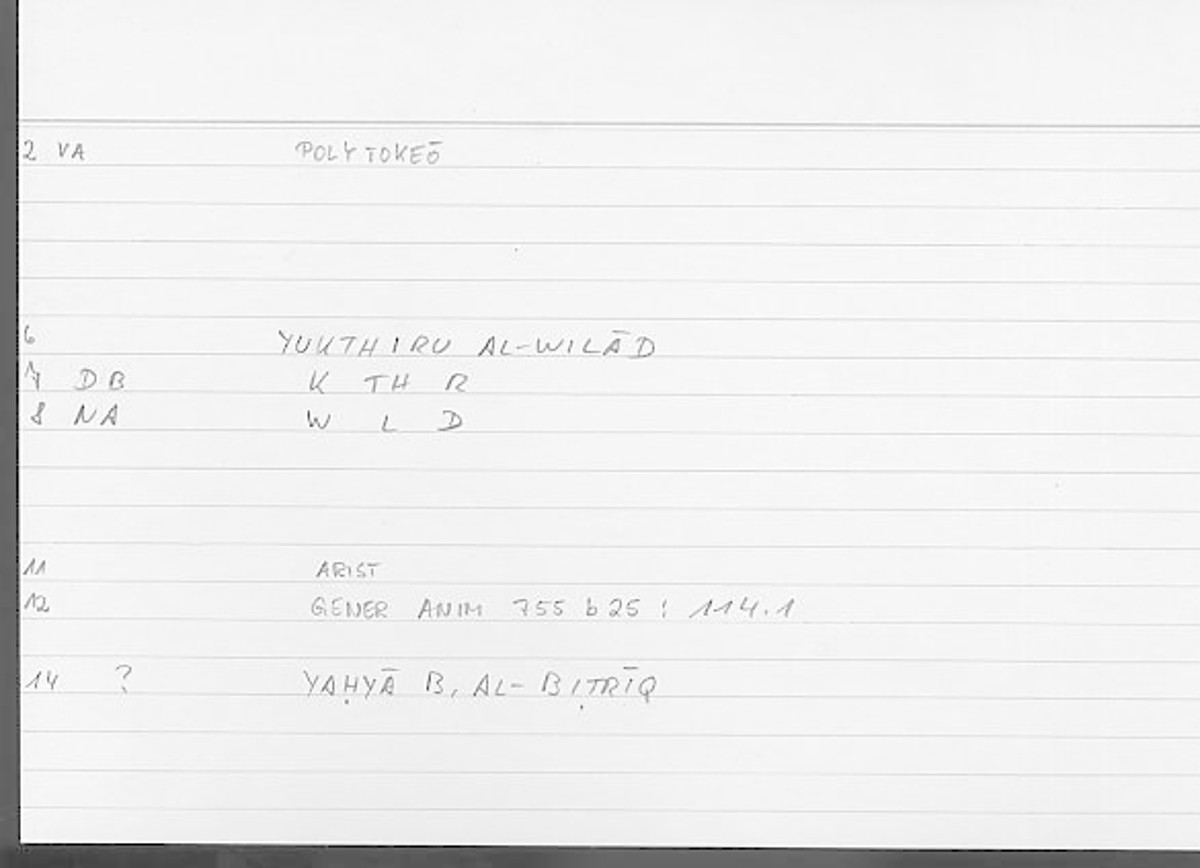 2 VA POLYTOKEŌ
6 YUKTHIRU AL-WILĀD
7 DB K TH R
8 NA W L D
11 ARIST
12 GENER ANIM 755 b 25 : 114.1
14 ? YAḤYĀ B. AL-BIṬRĪQ